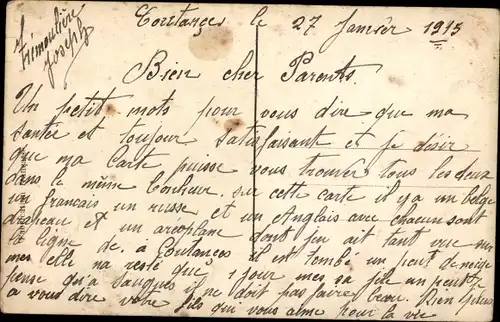 Trémoulière
Joseph
Coutances le 27 Janvier 1915
Bien cher Parents.
Un petit mots pour vous dire que ma
santer et toujour satisfaisant et je désir
que ma carte puisse vous trouver tous les deux
dans le même bonheur. sur cette carte il y a un belge
un francais un russe et un Anglais avec chacun sont
drapeau et un aréoplane dont jen ait tant vue sur
la ligne de. a Coutances il est tombé un peut de neige
mes elle na resté que 1 jour mes sa file un peut
pense qu'a Saugues il ne doit pas faire beau. Rien
a vous dire votre fils qui vous aime pour la vie